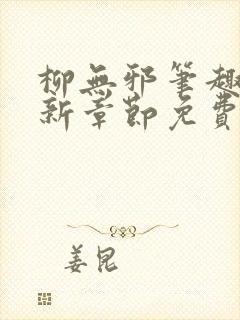 柳無邪筆趣
新章節免費
姜昆